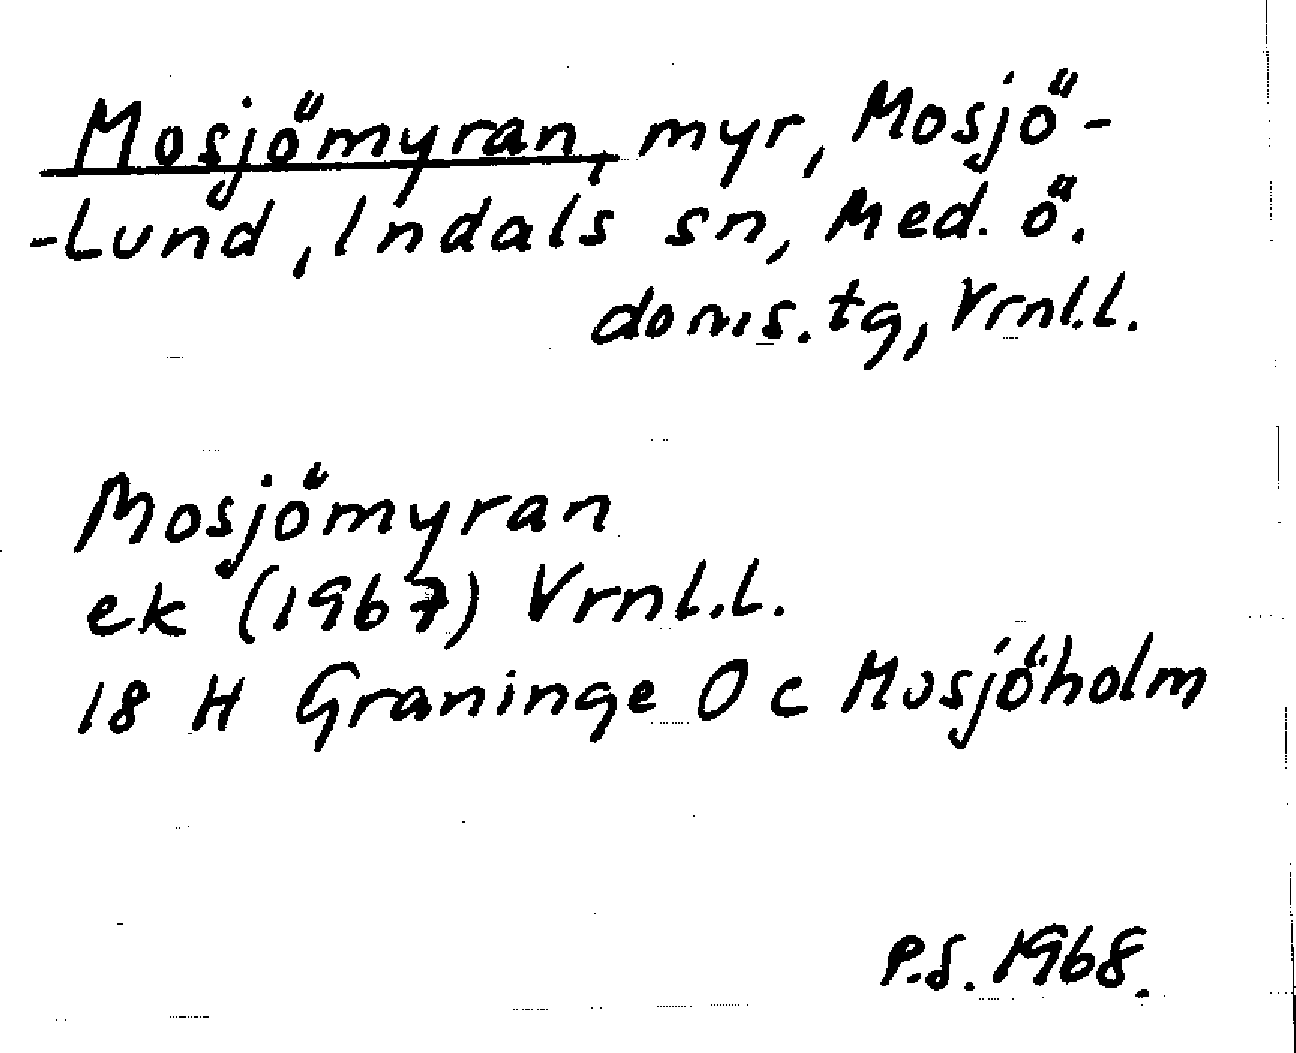 Mosjömyran, myr, Mosjö-
-Lund, Indals sn, Med. ö.
doms. tg, Vrnl.l.
Mosjömyran
ek (1967) Vrnl.l.
18 H Graninge O c Mosjöholm
P.S. 1968.